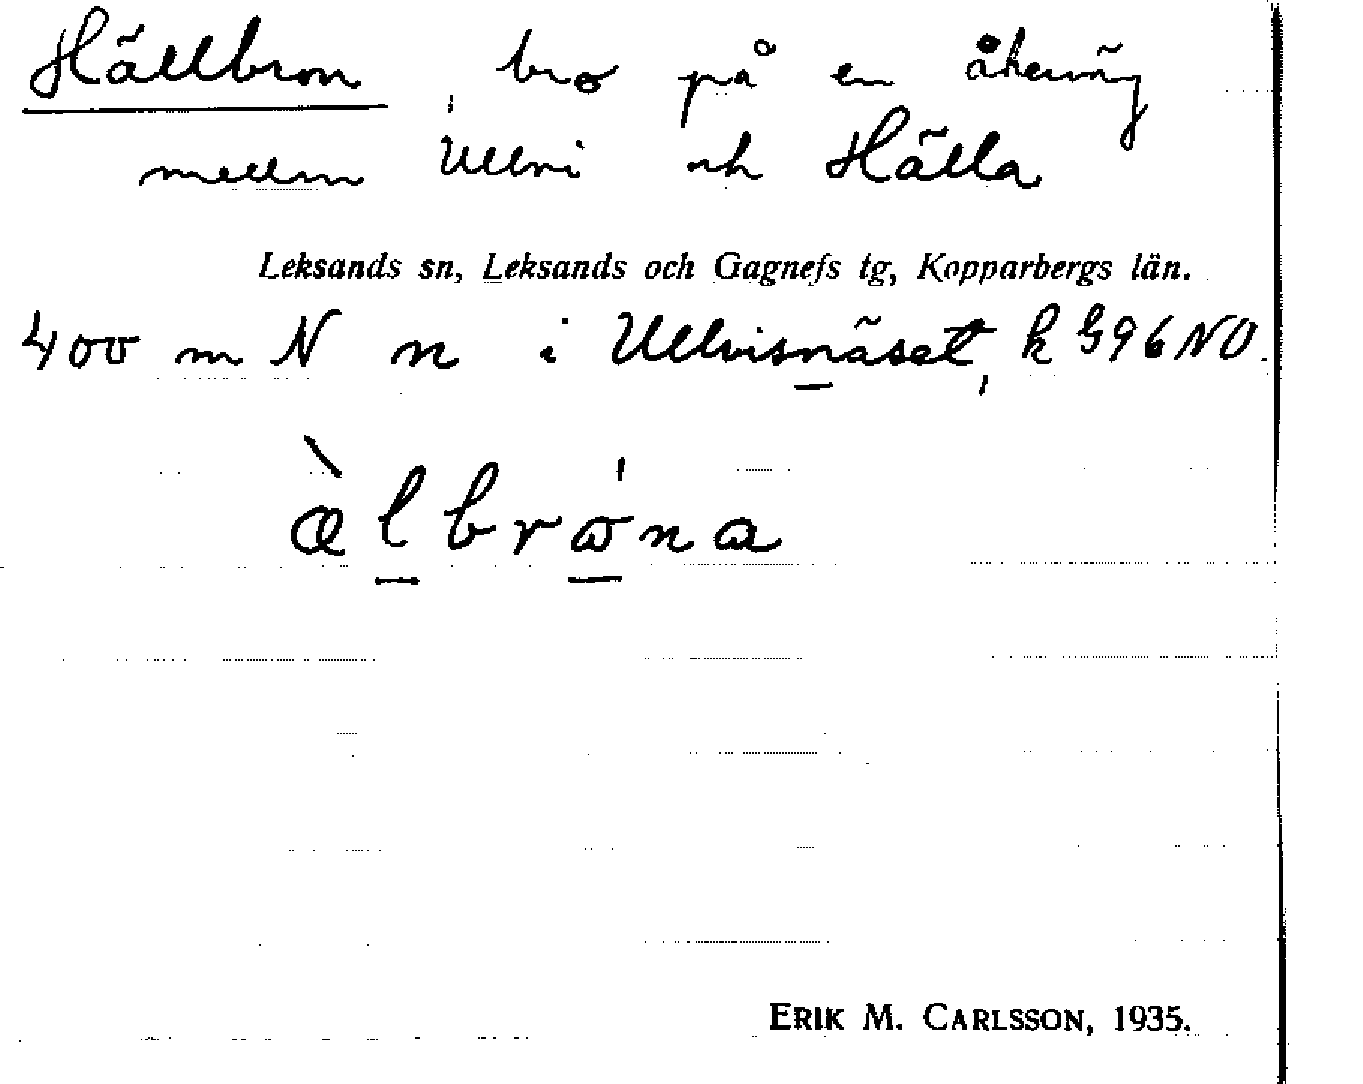 Hällbron, bro på en åkerväg
mellan Ullvi och Hälla
Leksands sn, Leksands och Gagnefs tg, Kopparbergs län.
400 m N n i Ullvisnäset, k G96NO.
æ̀lbrω̍na
ERIK M. CARLSSON, 1935.